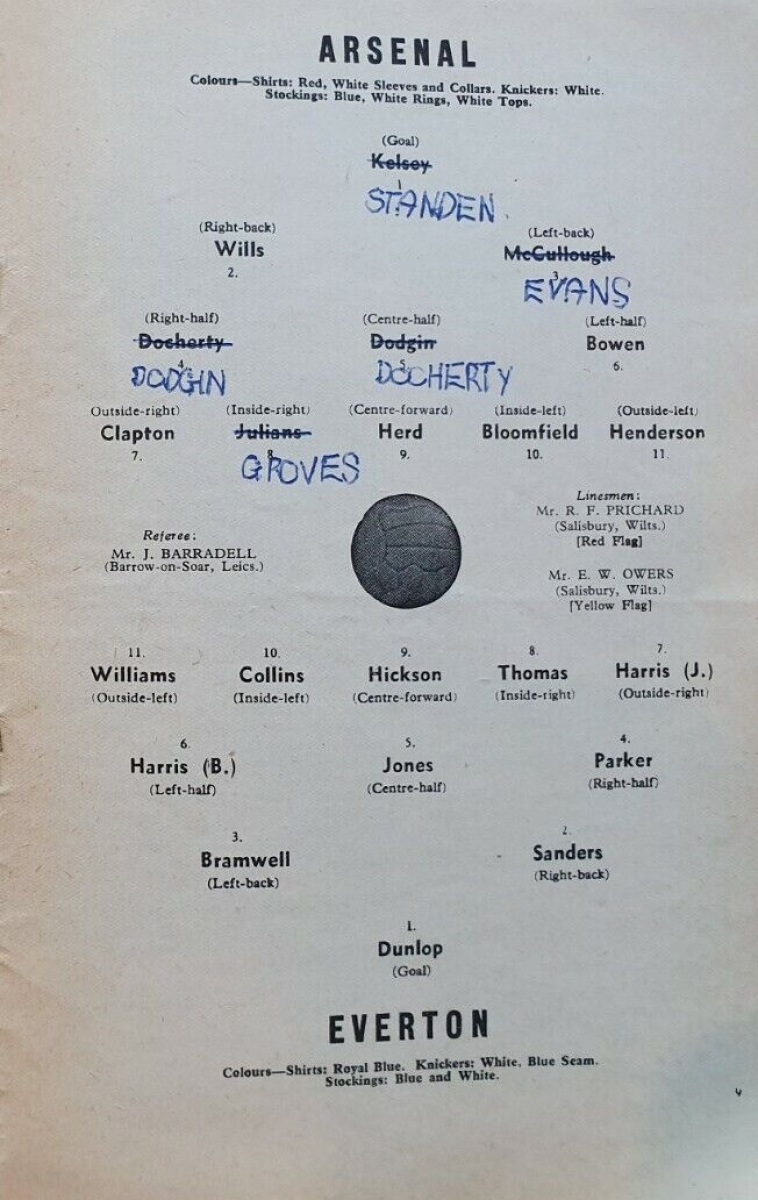 ARSENAL
Colours—Shirts: Red, White Sleeves and Collars. Knickers: White.
Stockings: Blue, White Rings, White Tops.
(Goal)
Kelsey
1
STANDEN
(Right-back) (Left-back)
Wills McCullough
2. 3
EVANS
(Right-half) (Centre-half) (Left-half)
Docherty Dodgin Bowen
4 5 6.
DODGIN DOCHERTY
Outside-right) (Inside-right) (Centre-forward) (Inside-left) (Outside-left)
Clapton Julians Herd Bloomfield Henderson
7. 8 9. 10. 11.
GROVES
Linesmen:
Mr. R. F. PRICHARD
(Salisbury, Wilts.)
[Red Flag]
Referee:
Mr. J. BARRADELL
(Barrow-on-Soar, Leics.)
Mr. E. W. OWERS
(Salisbury, Wilts.)
[Yellow Flag]
11. 10. 9. 8. 7.
Williams Collins Hickson Thomas Harris (J.)
(Outside-left) (Inside-left) (Centre-forward) (Inside-right) (Outside-right)
6. 5. 4.
Harris (B.) Jones Parker
(Left-half) (Centre-half) (Right-half)
3. 2.
Bramwell Sanders
(Left-back) (Right-back)
1.
Dunlop
(Goal)
EVERTON
Colours—Shirts: Royal Blue. Knickers: White, Blue Seam.
Stockings: Blue and White.